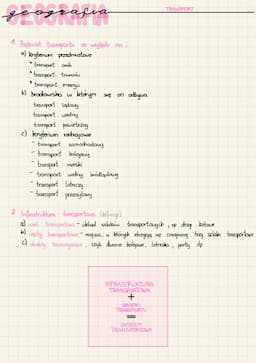 GEOGRAFIA
geografia
TRANSPORT
1. Podział transportu ze względu na :
a) kryterium przedmiotowe
* transport osób
* transport towarów
* transport energii
b) środowisko w którym się on odbywa
transport lądowy
transport wodny
transport powietrzny
c) kryterium rodzajowe
- transport samochodowy
- transport kolejowy
- transport morski
- transport wodny śródlądowy
- transport lotniczy
- transport przesyłowy
2. Infrastruktura transportowa (definicje)
a) sieć transportowa - układ szlaków transportowych, np. drogi kołowe
b) węzły transportowe - miejsca, w których zbiegają się co najmniej trzy szlaki transportowe
c) obiekty transportowe, czyli dworce kolejowe, lotniska, porty itp
INFRASTRUKTURA
TRANSPORTOWA
+
ŚRODKI
TRANSPORTU
=
SYSTEM
TRANSPORTOWY